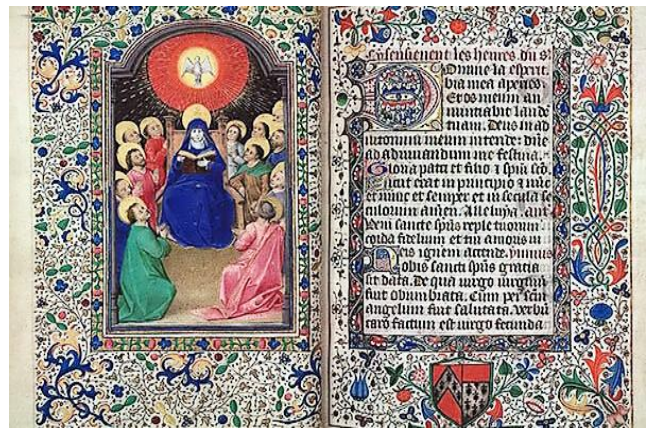 Cy ensuivent les heures du s.
Domine labia
bia mea aperies
Et os meum an
nuntiabit laude
tuam. Deus in ad
iutorium meum intende: dne
ad adiuuandum me festina.
Gloria patri et filio: i spiu sco
Sicut erat in principio i nuc
et nunc et semper et in secula se
culorum amen. Alleluya. ant.
Veni sancte spūs reple tuorum
corda fidelium et tui amoris in
eis ignem accende. ymnus
Nobis sancti spūs gratia
sit data. De qua uirgo uirginū
fuit obumbrata. Cum per scm
angelum fuit salutata. Verbū
caro factum est uirgo fecunda